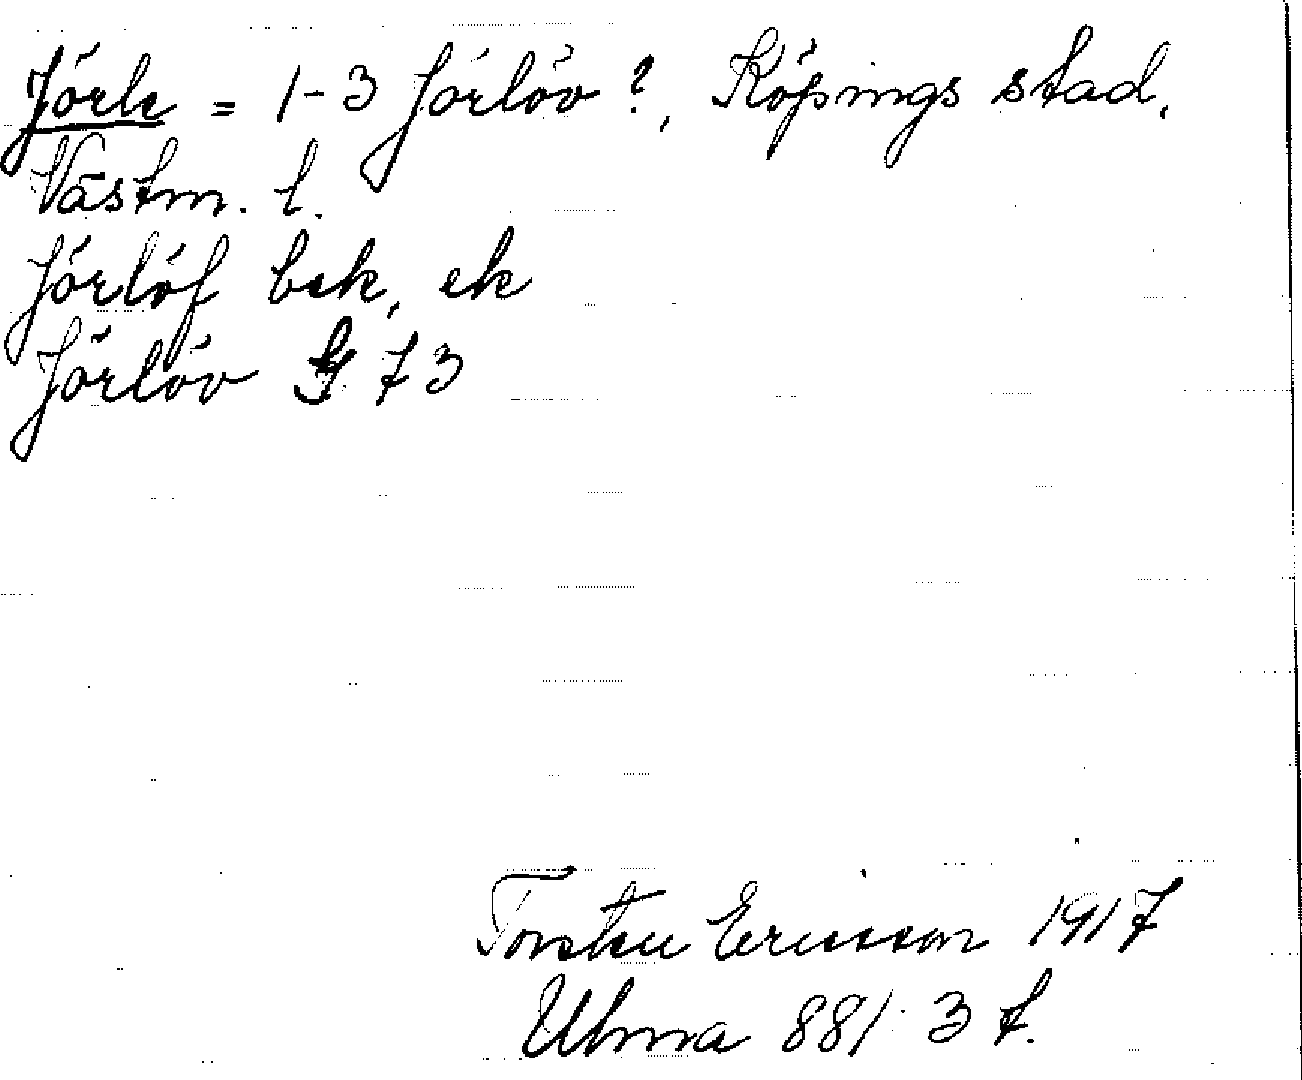 Jörle = 1-3 Jörlöv?, Köpings stad,
Västm. l.
Jörlöf bek, ek
Jörlöv G 73
Torsten Ericsson 1917
Ulma 881: 3 f.